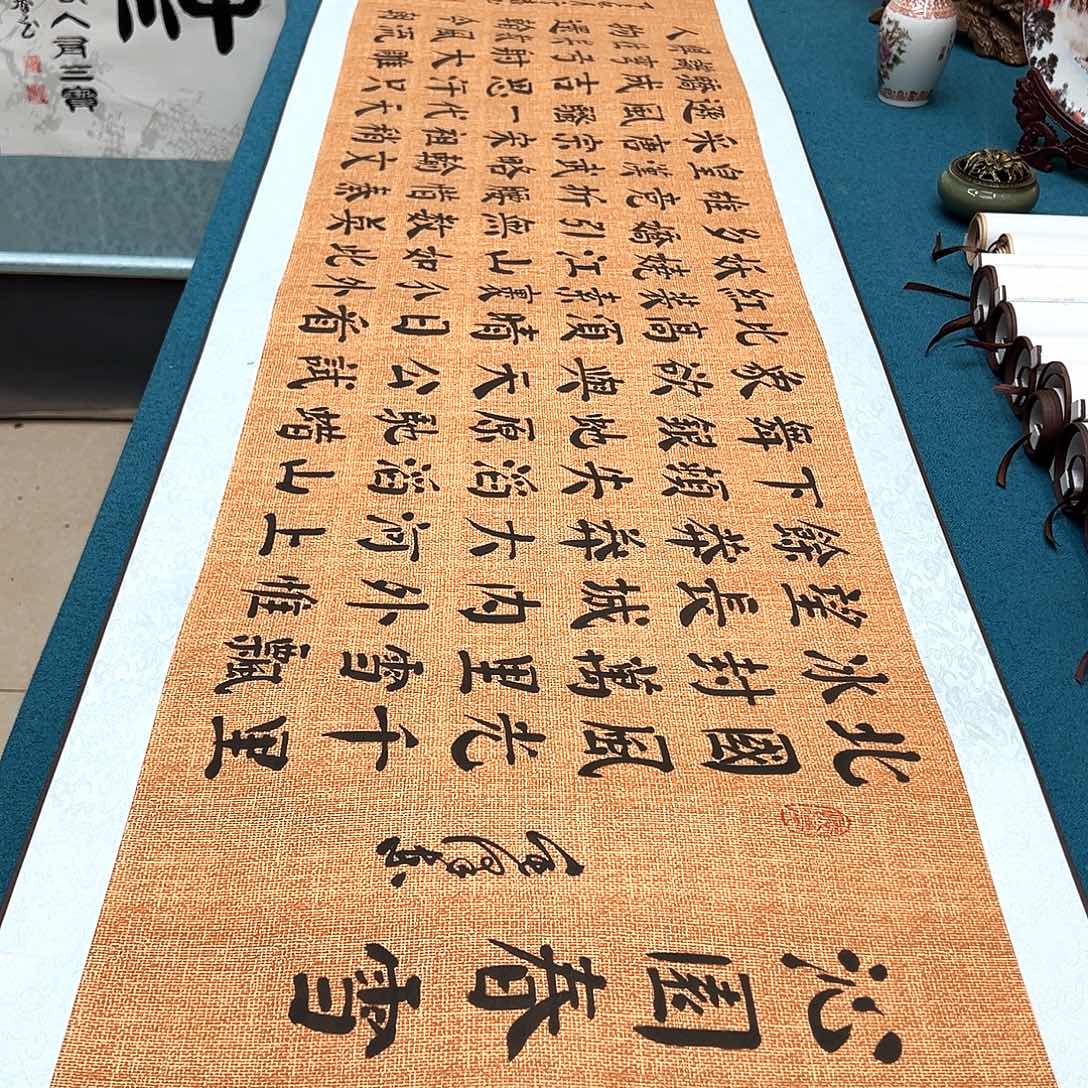 沁園春雪
北國風光千里
冰封萬里雪飄
望長城內外惟
餘莽莽大河上
下頓失滔滔山
舞銀蛇原馳蜡
象欲與天公試
比高須晴日看
紅裝素裹分外
妖嬈江山如此
多嬌引無數英
雄竞折腰惜秦
皇漢武略輸文
采唐宗宋祖稍
遜風騷一代天
驕成吉思汗只
識彎弓射大雕
俱往矣數風流
人物還看今朝
人有三寶